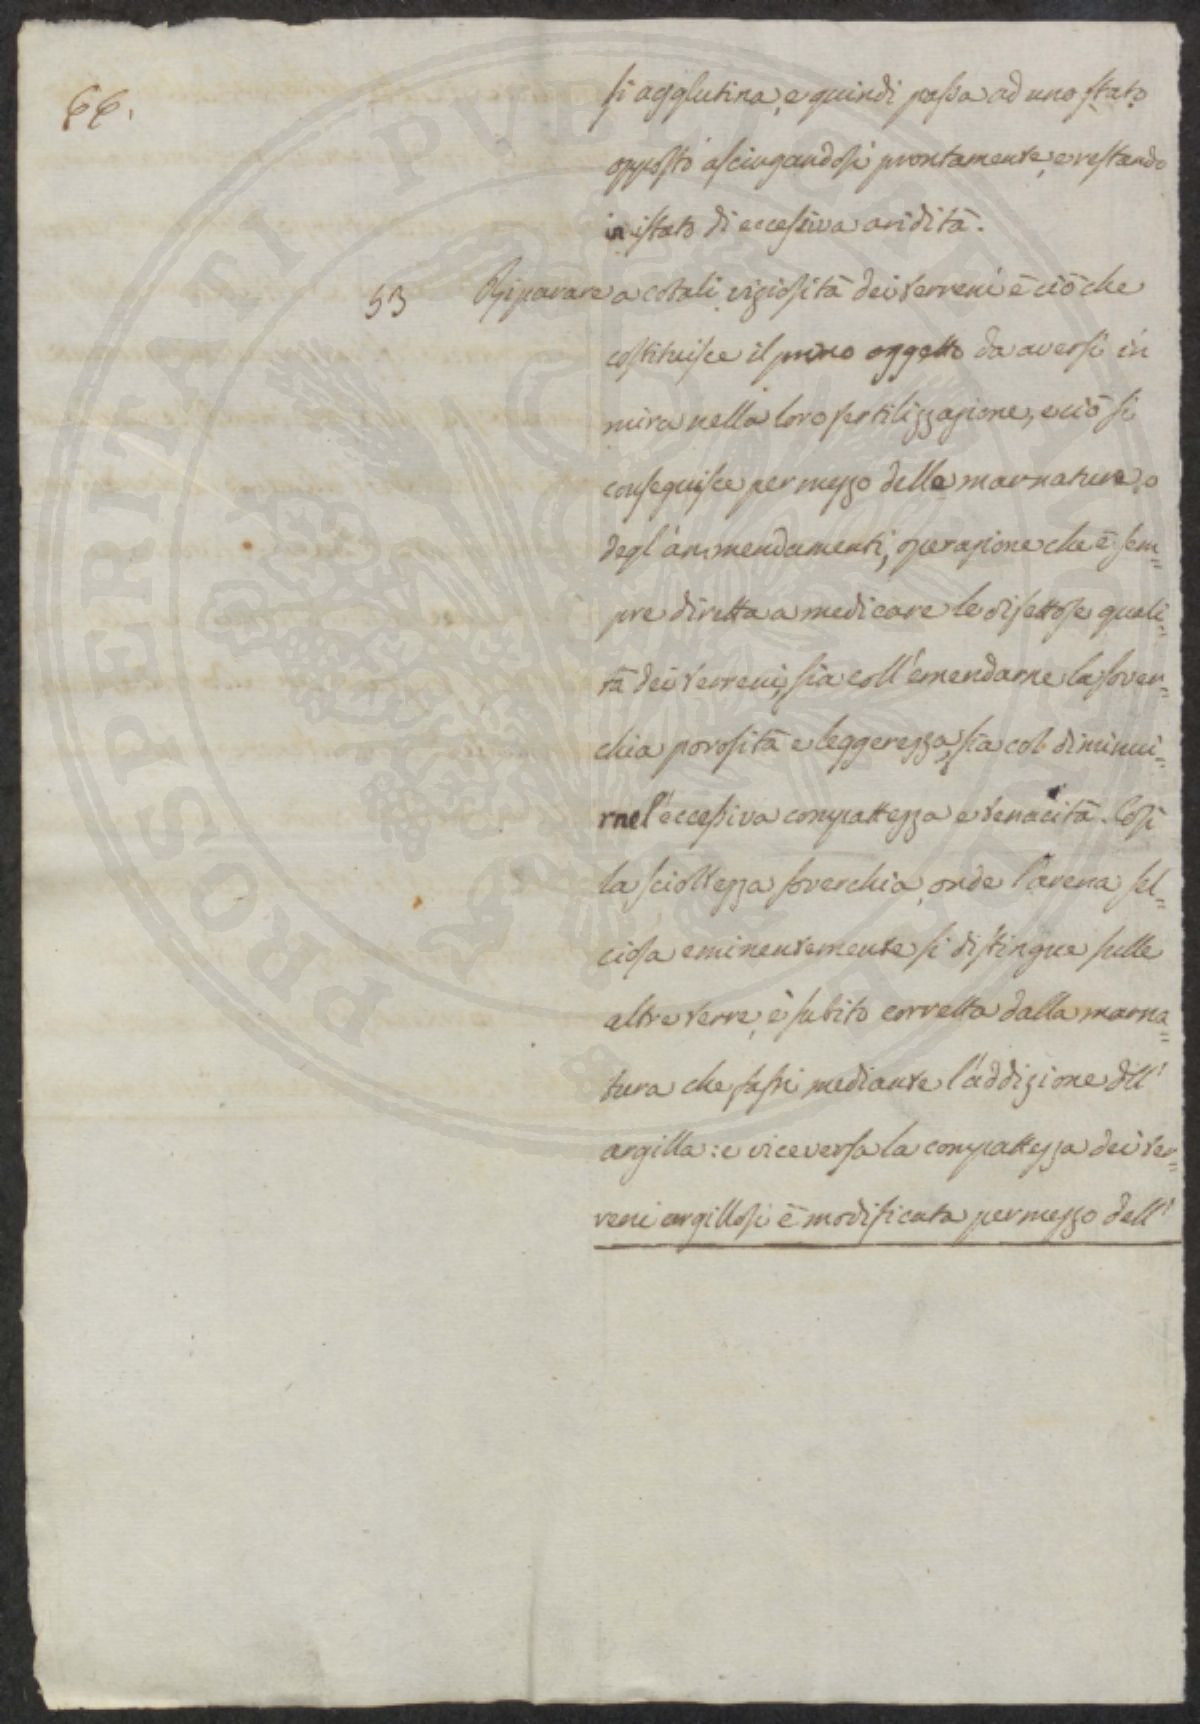 66.
si agglutina, e quindi passa ad uno stato
opposto asciugandosi prontamente, e restando
in istato di eccessiva aridità.
53 Riparare a cotali viziosità dei terreni è ciò che
costituisce il primo oggetto da aversi in
mira nella loro fertilizzazione, e ciò si
conseguisce per mezzo delle marnature, o
degl'ammendamenti, operazione che è sem=
pre diretta a medicare le difettose quali=
tà dei terreni, sia coll'emendarne la sover=
chia porosità e leggerezza, sia col diminui=
rne l'eccessiva compattezza e tenacità. Così
la scioltezza soverchia, onde l'arena sel=
ciosa eminentemente si distingue sulle
altre terre, è subito corretta dalla marna=
tura che fassi mediante l'addizione dell'
argilla: e viceversa la compattezza dei ter=
reni argillosi è modificata per mezzo dell'
PROSPERITATI PVBLICAE AVGENDAE